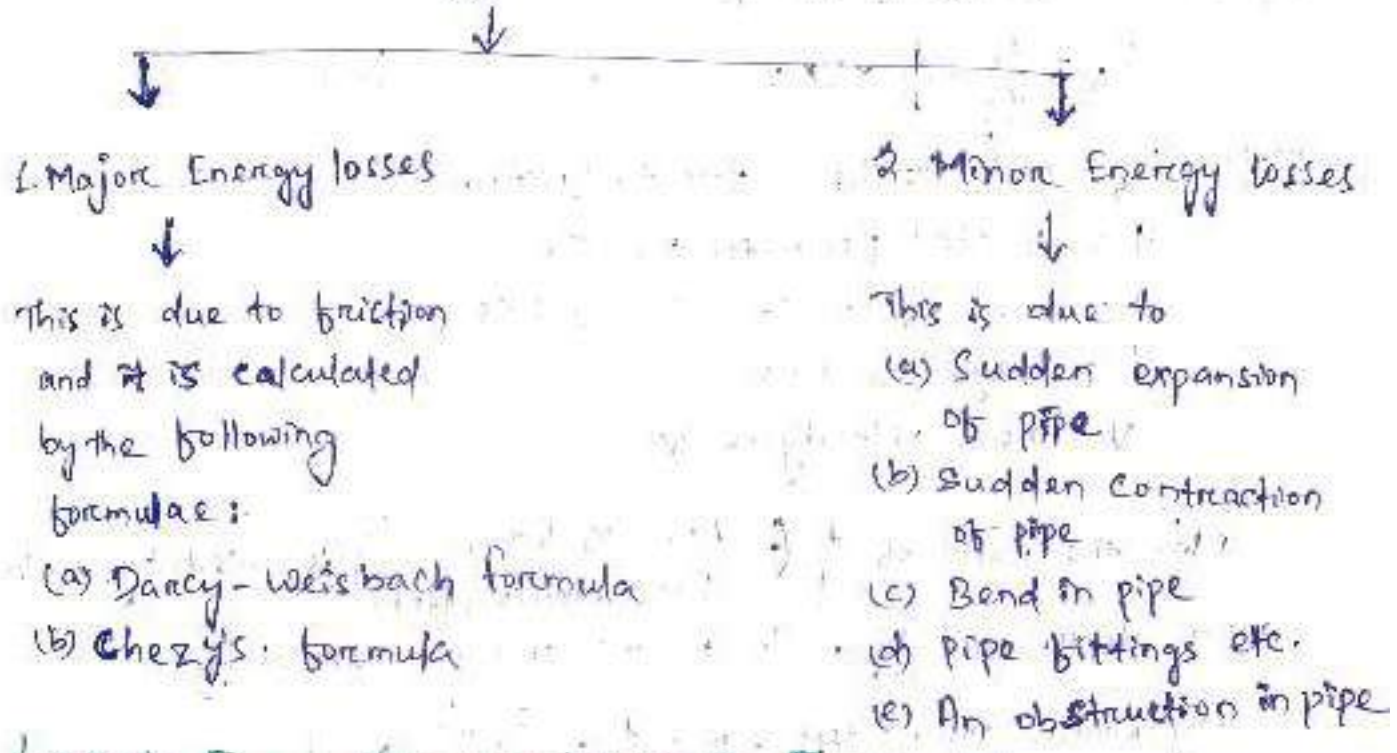 1. Major Energy losses
This is due to friction
and it is calculated
by the following
formulae:
(a) Darcy-Weisbach formula
(b) Chezy's formula
2. Minor Energy losses
This is due to
(a) Sudden expansion
of pipe
(b) Sudden Contraction
of pipe
(c) Bend in pipe
(d) pipe fittings etc.
(e) An obstruction in pipe